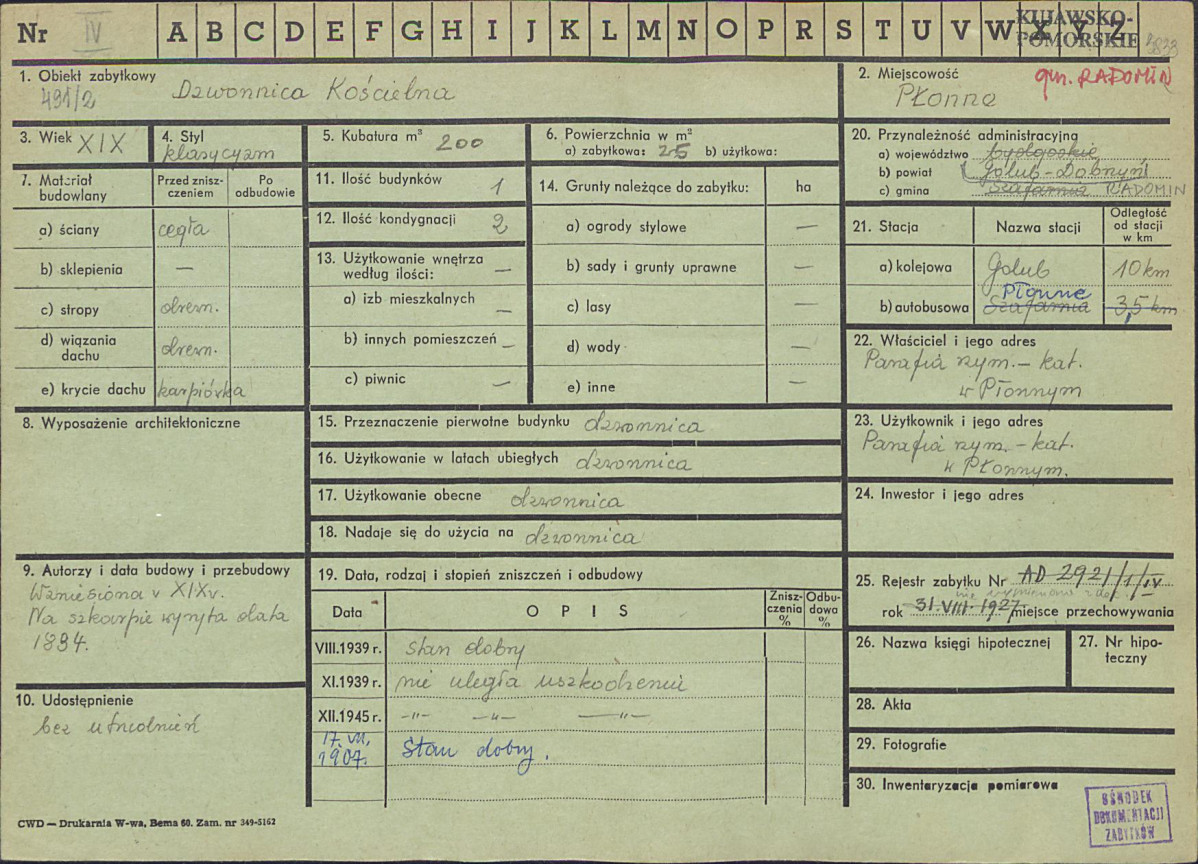 Nr IV A B C D E F G H I J K L M N O P R S T U V W X Y Z
KUJAWSKO-
POMORSKIE
1. Obiekt zabytkowy
491/2 Dzwonnica Kościelna
2. Miejscowość gm. RADOMIN
Płonne
3. Wiek XIX
4. Styl
klasycyzm
5. Kubatura m³ 200
6. Powierzchnia w m²
a) zabytkowa: 25 b) użytkowa:
20. Przynależność administracyjna
a) województwo bydgoskie
b) powiat Golub-Dobrzyń
c) gmina Szafarnia RADOMIN
7. Materiał
budowlany
Przed znisz-
czeniem
Po
odbudowie
a) ściany cegła
b) sklepienia —
c) stropy drewn.
d) wiązania
dachu drewn.
e) krycie dachu karpiówka
11. Ilość budynków 1
12. Ilość kondygnacji 2
13. Użytkowanie wnętrza
według ilości: —
a) izb mieszkalnych —
b) innych pomieszczeń —
c) piwnic —
14. Grunty należące do zabytku: ha
a) ogrody stylowe —
b) sady i grunty uprawne —
c) lasy —
d) wody —
e) inne —
21. Stacja
Nazwa stacji
Odległość
od stacji
w km
a) kolejowa Golub 10 km
Płonne
b) autobusowa Szafarnia 3,5 km
22. Właściciel i jego adres
Parafia rzym.- kat.
w Płonnym
8. Wyposażenie architektoniczne
15. Przeznaczenie pierwotne budynku dzwonnica
16. Użytkowanie w latach ubiegłych dzwonnica
17. Użytkowanie obecne dzwonnica
18. Nadaje się do użycia na dzwonnica
23. Użytkownik i jego adres
Parafia rzym.- kat.
w Płonnym.
24. Inwestor i jego adres
9. Autorzy i data budowy i przebudowy
Wzniesiona w XIXw.
Na szkarpie wyryta data
1834.
10. Udostępnienie
bez utrudnień
19. Data, rodzaj i stopień zniszczeń i odbudowy
Data
O P I S
Znisz-
czenia
%
Odbu-
dowa
%
VIII.1939 r. stan dobry
XI.1939 r. nie uległa uszkodzeniu
XII.1945 r. —"— —"— —"—
17. VII,
1967. Stan dobry.
25. Rejestr zabytku Nr AD 2921/1/IV
nie wymieniono
rok 31.VIII.1927 miejsce przechowywania
26. Nazwa księgi hipotecznej
27. Nr hipo-
teczny
28. Akta
29. Fotografie
30. Inwentaryzacja pomiarowa
OŚRODEK
DOKUMENTACJI
ZABYTKÓW
CWD — Drukarnia W-wa, Bema 60. Zam. nr 349-5162